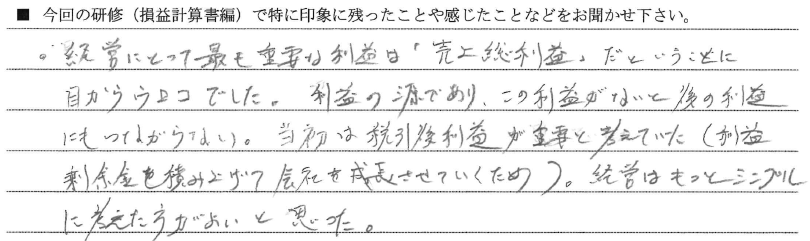 ■ 今回の研修（損益計算書編）で特に印象に残ったことや感じたことなどをお聞かせ下さい。
。経営にとって最も重要な利益は「売上総利益」だということに
目からウロコでした。利益の源であり、この利益がないと後の利益
にもつながらない。当初は税引後利益が重要と考えていた（利益
剰余金を積み上げて会社を成長させていくため）。経営はもっとシンプル
に考えた方がよいと思った。